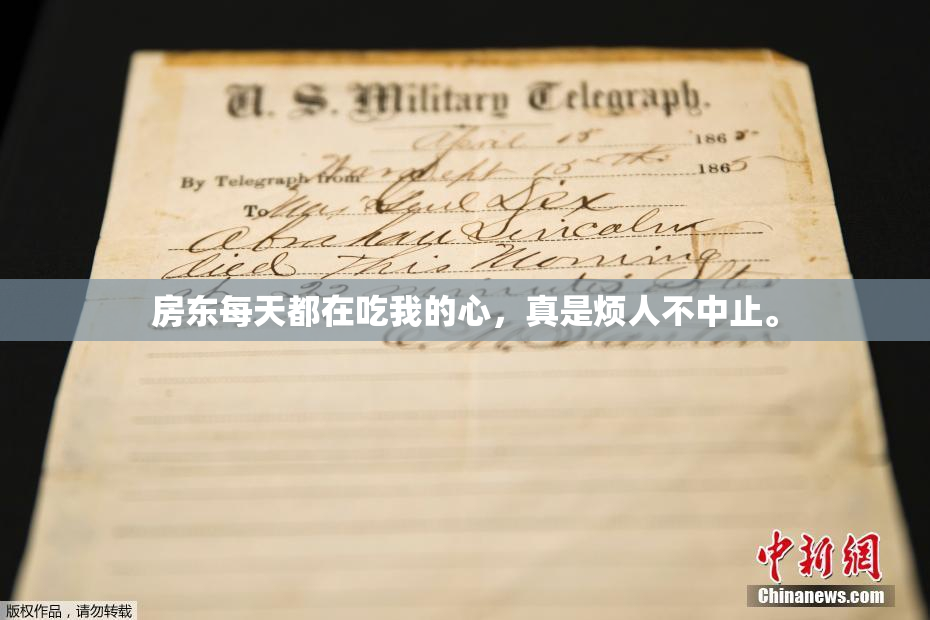 U. S. Military Telegraph.
April 15 1865
By Telegraph from War Dept 15th 1865
To Maj Genl Dix
Abraham Lincoln
died This Morning
at 22 minutes after
房东每天都在吃我的心，真是烦人不中止。
E. M. Stanton
中新網
Chinanews.com
版权作品，请勿转载